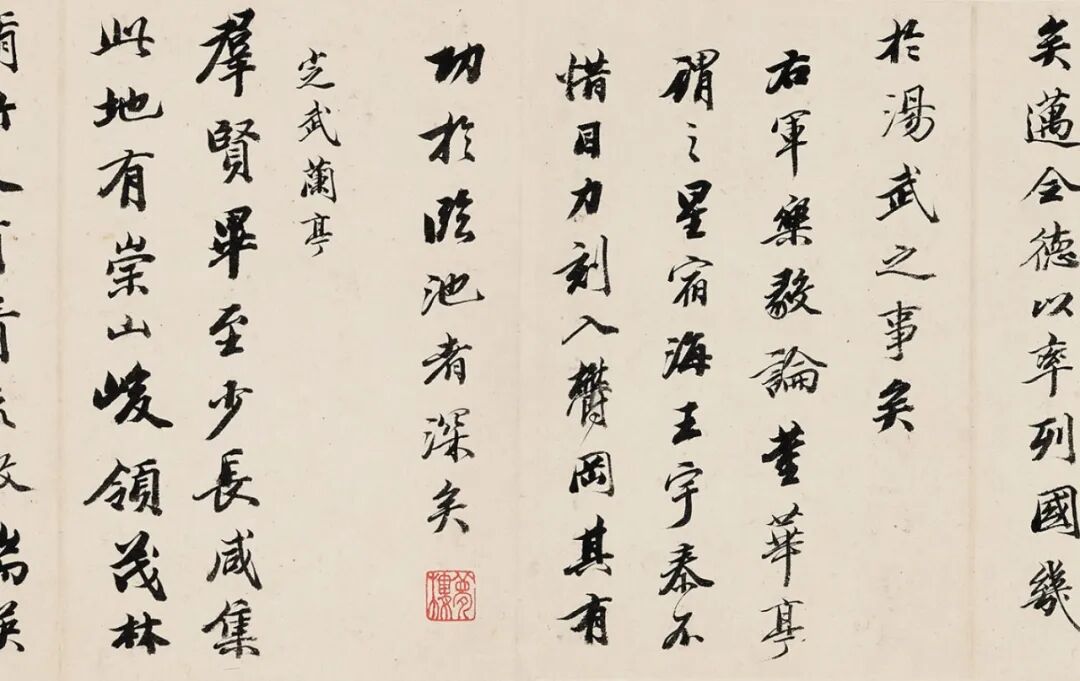 矣邁全德以率列國幾
於湯武之事矣
右軍樂毅論董華亭
謂之星宿海王宇泰不
惜目力刻入鬱岡其有
功於臨池者深矣
夢樓
定武蘭亭
羣賢畢至少長咸集
此地有崇山峻領茂林